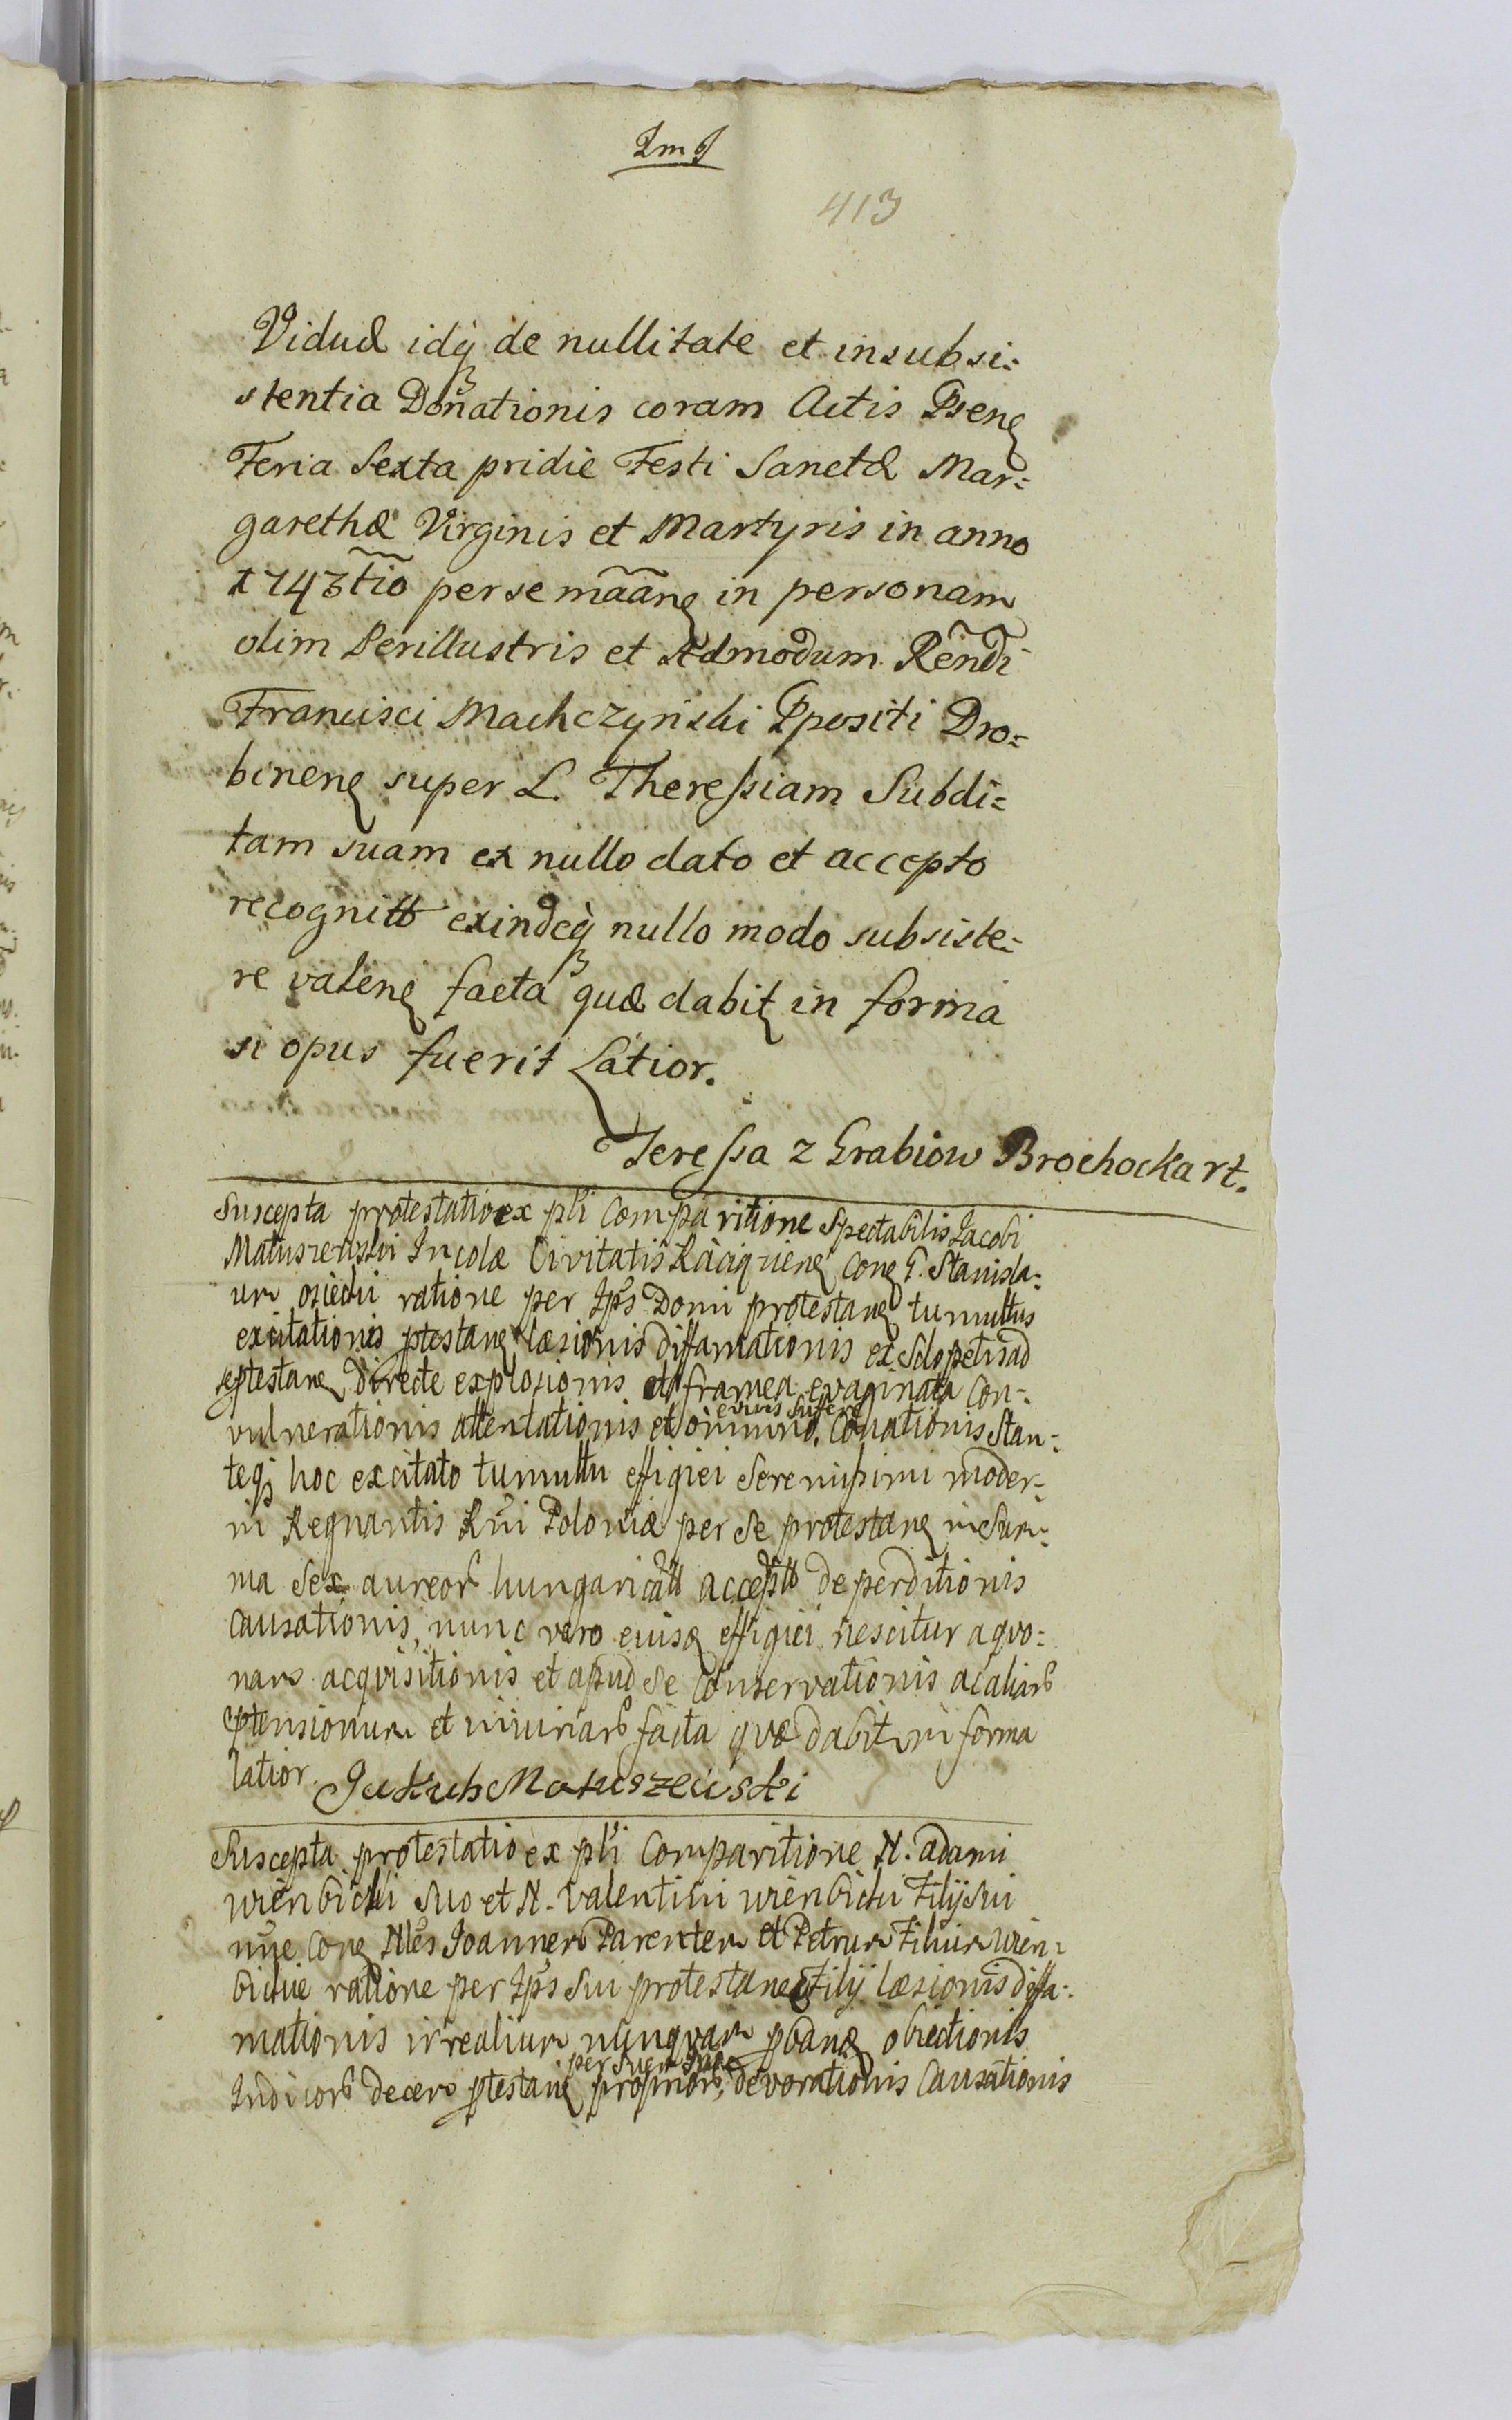 413
Viduæ idq̃ de nullitate et insubsi:
stentia Donationis coram Actis Psenꝭ
Feria Sexta pridie Festi Sanctæ Mar:
garethæ Virginis et Martyris in anno
1743tio per se mãanꝭ in personam
olim Perillustris et Admodum Rẽndi
Francisci Machczynski Ppositi Dro:
binenꝭ super L. Theressiam Subdi:
tam suam ex nullo dato et accepto
recognitt exindeq̃ nullo modo subsiste:
re valenꝭ facta quæ dabit in forma
si opus fuerit Latior.
Teressa z Grabiow Brochocka rt.
Suscepta protestatio ex pti Comparitione Spectabilis Jacobi
Matuszenski Incolæ Civitatis Raciązienꝭ Conꝭ G. Stanisla:
um osiecki ratione per Ips Domi protestanꝭ tumultus
excitationis ptestanꝭ læsionis diffamationis ex Sclopetis ad
se ptestanꝭ directe explosionis et framea evaginata con:
vulnerationis attentationis et omnino Conationis Stan:
teq̃ hoc excitato tumultu effigiei Serenissimi moder:
ni Regnantis Rni Poloniæ per Se protestanꝭ in Sum:
ma Sex aureor hungaricatt acceptt deperditionis
Causationis, nunc vero eiusq effigiei nescitur a quo:
nam acquisitionis et apud Se Conservationis ac aliar
ptensionum et iniuriar facta quæ dabit in forma
latior. Jakub Matuszewski
Suscepta protestatio ex pti Comparitione N. Adami
wienbicki Suo et N. Valentini wienbicki Filij Sui
nne Conꝭ Nles Joannem Parentem et Petrum Filium wien:
bickie ratione per Ips Sui protestanꝭ Filij læsionis diffa:
mationis irrealium nunquam pbanꝭ obiectionis
per Suem
Indicor decem ptestanꝭ proprior, devorationis Causationis